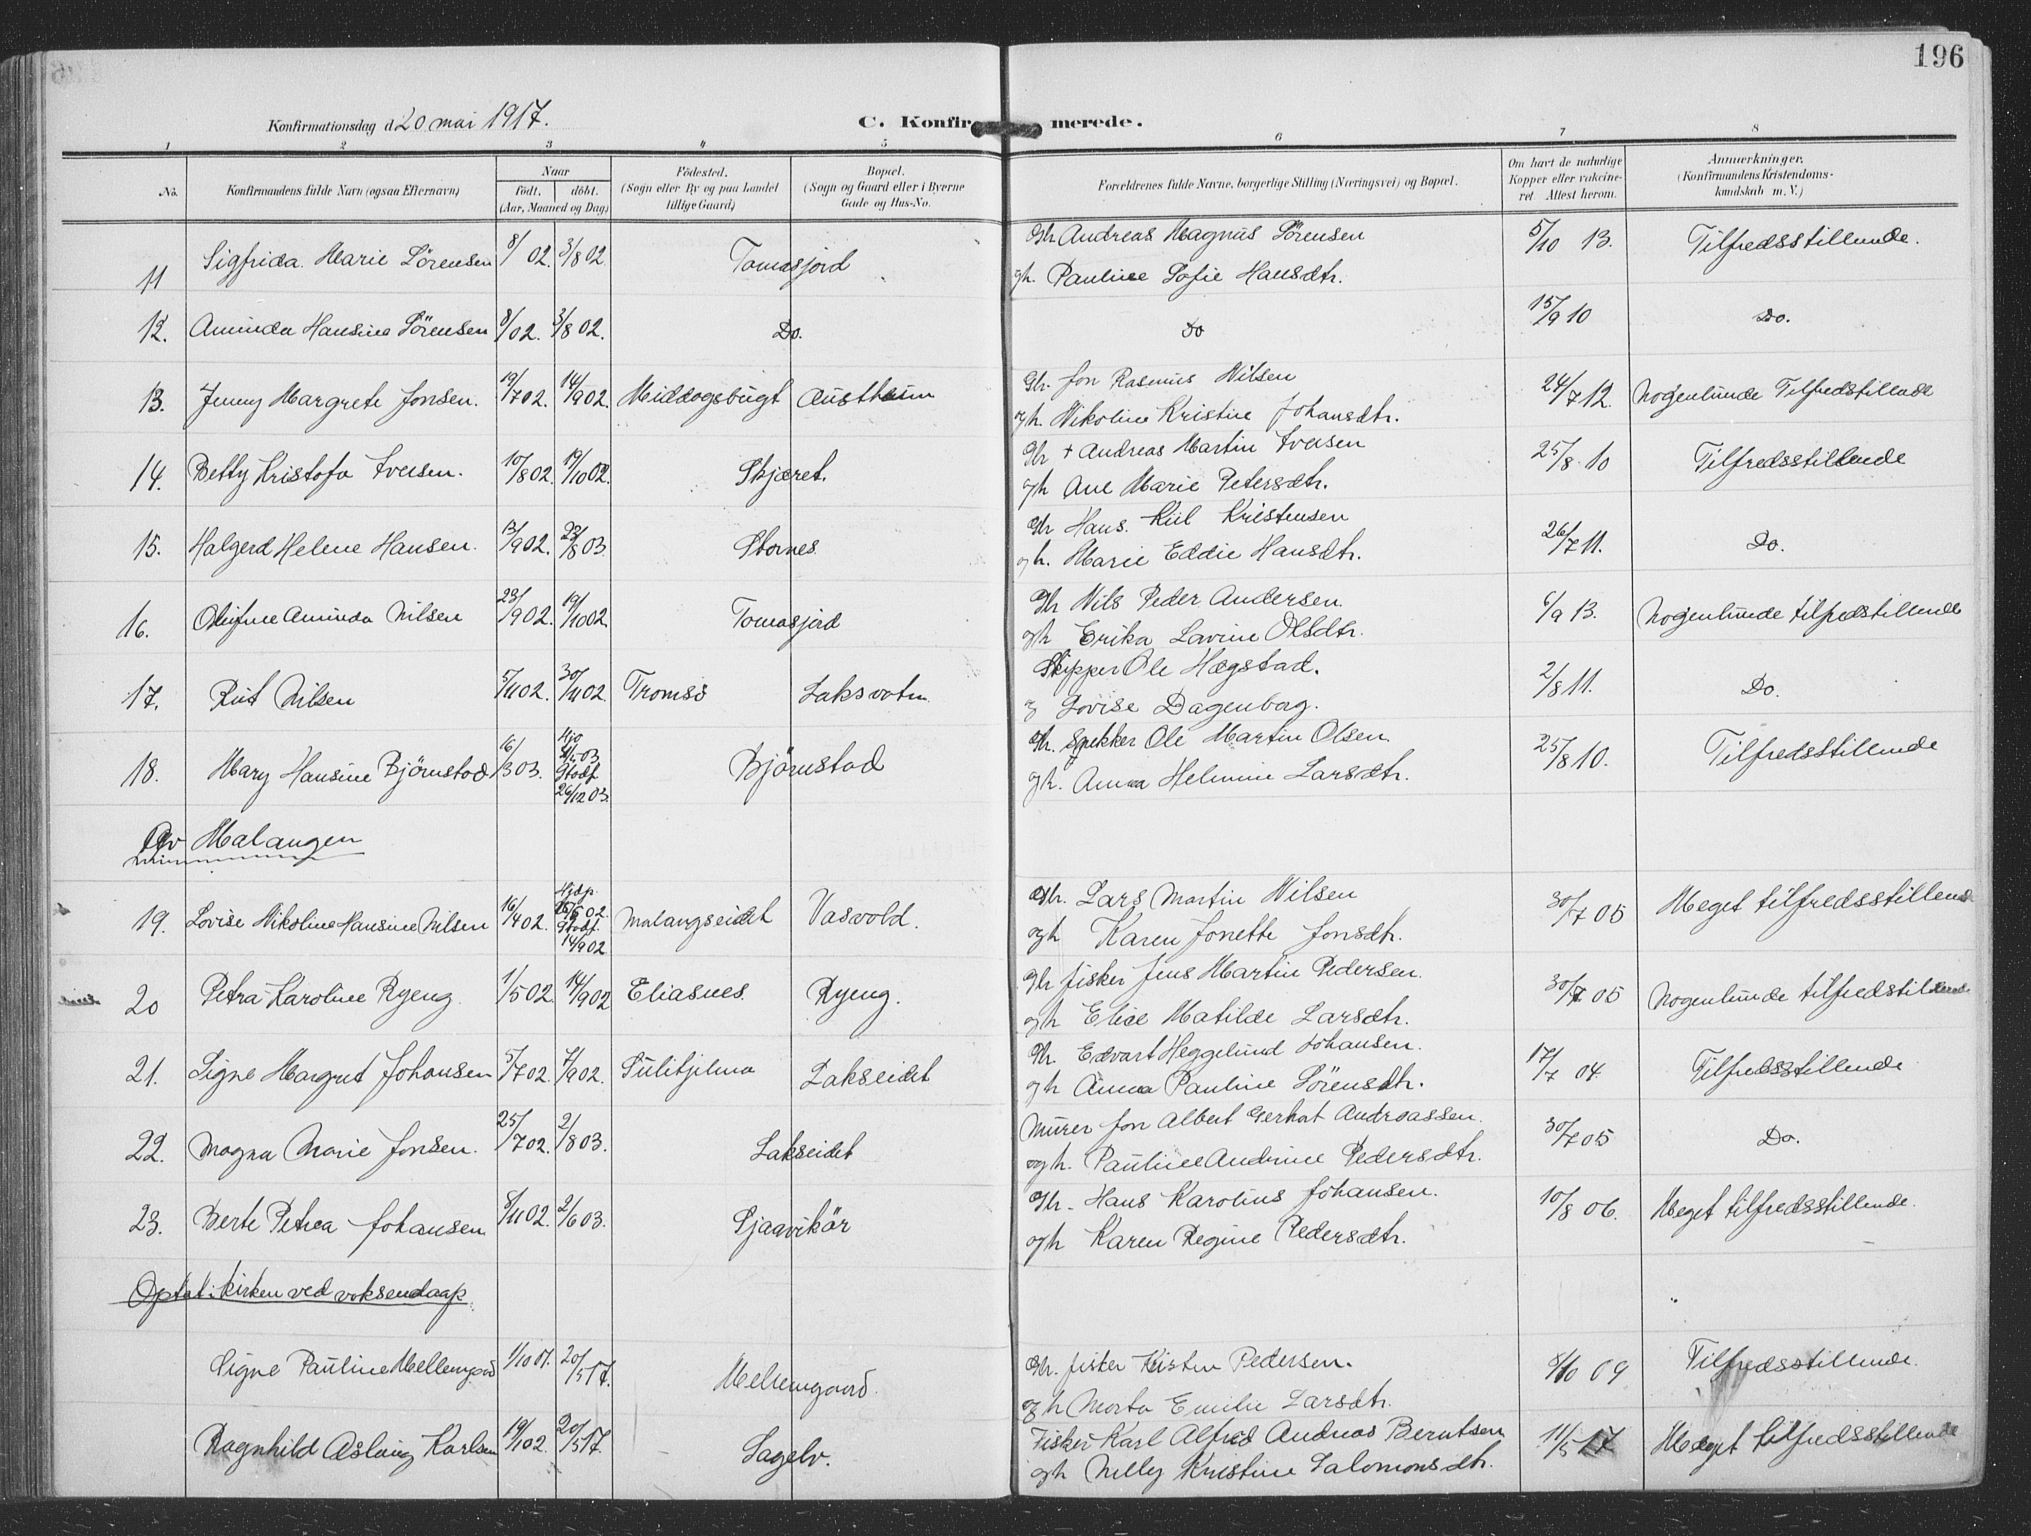 196
Konfirmationsdag d. 20 mai 1917.
C. Konfirmerede.
1 2 3 4 5 6 7 8
No. Konfirmandens fulde Navn (ogsaa Efternavn) Naar födt. döbt. (Aar, Maaned og Dag) Födested. (Sogn eller By og paa Landet tillige Gaard) Bopæl. (Sogn og Gaard eller i Byerne Gade og Hus-No. Forældrenes fulde Navne, borgerlige Stilling (Næringsvei) og Bopæl. Om havt de naturlige Kopper eller vakcineret Attest herom. Anmerkninger. (Konfirmandens Kristendomskundskab m. V.)
11 Sigfrida Marie Sörensen 8/ 02. 3/8 02. Tomasjord Gbr Andreas Magnus Sörensen 5/10 13. Tilfredsstillende.
gh. Pauline Sofie Hansdtr.
12. Aminda Hansine Sörensen 8/02. 3/8 02. Do. Do 15/9 10 Do.
13. Jenny Margrete Jonsen. 19/7 02. 14/9 02. Middagsbugt Austheim Gbr. Jon Rasmus Nilsen 24/7 12. Nogenlunde Tilfredstillende
og h. Nikoline Kristine Johansdtr.
14. Betty Kristofa Iversen. 10/8 02. 19/10 02. Skjæret. Gbr + Andreas Martin Iversen 25/8 10 Tilfredsstillende
og h Ane Marie Petersdtr.
15. Halgerd Helene Hansen. 13/9 02. 23/8 03. Stornes. Gbr Hans Kiil Kristensen 26/7 11. Do.
og h. Marie Eddie Hansdtr.
16. Olufine Aminda Nilsen 23/9 02. 19/10 02. Tomasjord Gbr Nils Peder Andersen. 6/9 13. Nogenlunde tilfredstillende
og h Erika Lavine Olsdtr.
17. Rut Nilsen 5/11 02. 30/11 02. Tromsö Laksvatn Skipper Ole Hægstad. 2/8 11. Do.
og Lovise Dagenborg.
18. Mary Hansine Björnstad 16/3 03. Hjd 03. Stadf. 26/12 03. Björnstad Gbr. Snekker Ole Martin Olsen. 25/8 10. Tilfredsstillende
og h. Anna Helmine Larsdtr.
Av Malangen
19. Lovise Nikoline Hansine Nilsen 16/4 02. Hjdp. 02. Stadf. 14/9 02. Malangseidet Vasvold. Gbr. Lars Martin Nilsen 30/7 05 Meget tilfredsstillende
og h Karen Jonette Jonsdtr.
20 Petra Karoline Ryeng 1/5 02. 14/9 02 Eliasnes. Ryeng. Gbr fisker Jens Martin Pedersen. 30/7 05 Nogenlunde tilfredstillende
og h Elise Matilde Larsdtr.
21. Signe Margret Johansen 5/7 02. 7/9 02. Sulitjelma Lakseidet Gbr. Edvart Heggelund Johansen. 17/7 04. Tilfredsstillende
og h Anna Pauline Sörensdtr.
22. Magna Marie Jonsen. 25/7 02. 2/8 03. Lakseidet Murer Jon Albert Gerhat Andreassen. 30/7 05 Do.
og h. Pauline Andrine Pedersdtr.
23. Berte Petrea Johansen 8/11 02. 2/6 03. Sjaavikör Gbr. Hans Karolius Johansen. 10/8 06. Meget tilfredsstillende.
og h Karen Regine Pedersdtr.
Optat i kirken ved voksendaap.
Signe Pauline Mellemgård 1/10 01. 20/5 17. Mellemgaard. Gbr. fisker Kristen Pedersen. 8/10 09 Tilfredsstillende.
og h Marta Emilie Larsdtr.
Ragnhild Aslaug Karlsen 19/1 02. 20/5 17. Sagelv. Fisker Karl Alfred Andreas Berntsen 11/5 17 Meget tilfredsstillende
og h Nelly Kristine Salomonsdtr.